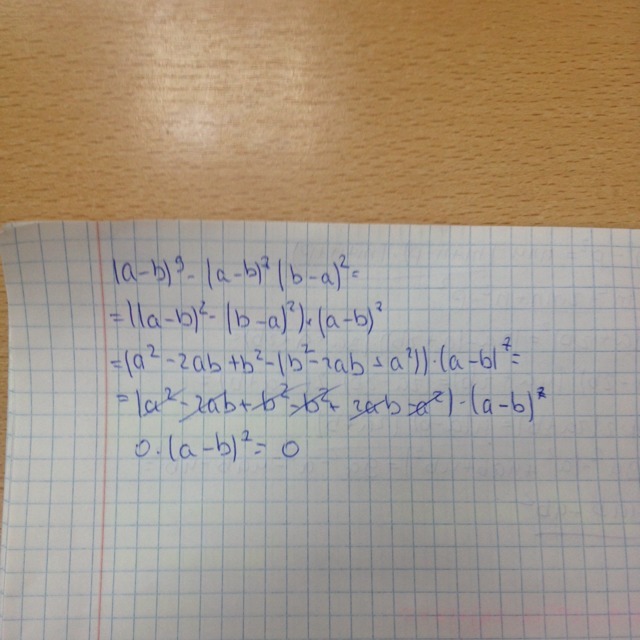 (a-b)⁹ - (a-b)⁷ (b-a)² =
= ((a-b)² - (b-a)²)·(a-b)⁷
= (a² - 2ab + b² - (b² - 2ab + a²))·(a-b)⁷ =
= (a² - 2ab + b² - b² + 2ab - a²)·(a-b)⁷
0·(a-b)⁷ = 0